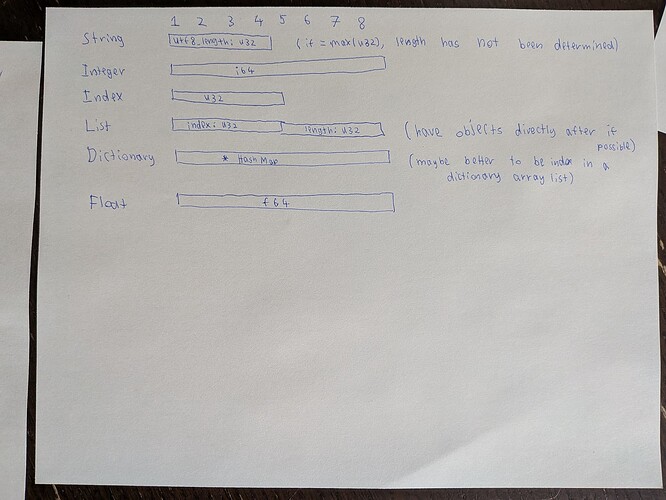 1 2 3 4 5 6 7 8
String utf8_length: u32 (if = max(u32), length has not been determined)
Integer i64
Index u32
List index: u32 length: u32 (have objects directly after if possible)
Dictionary * HashMap (maybe better to be index in a
dictionary array list)
Float f64